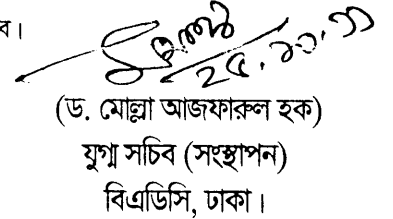 ব।
২৫.১০.১১
(ড. মোল্লা আজফারুল হক)
যুগ্ম সচিব (সংস্থাপন)
বিএডিসি, ঢাকা।